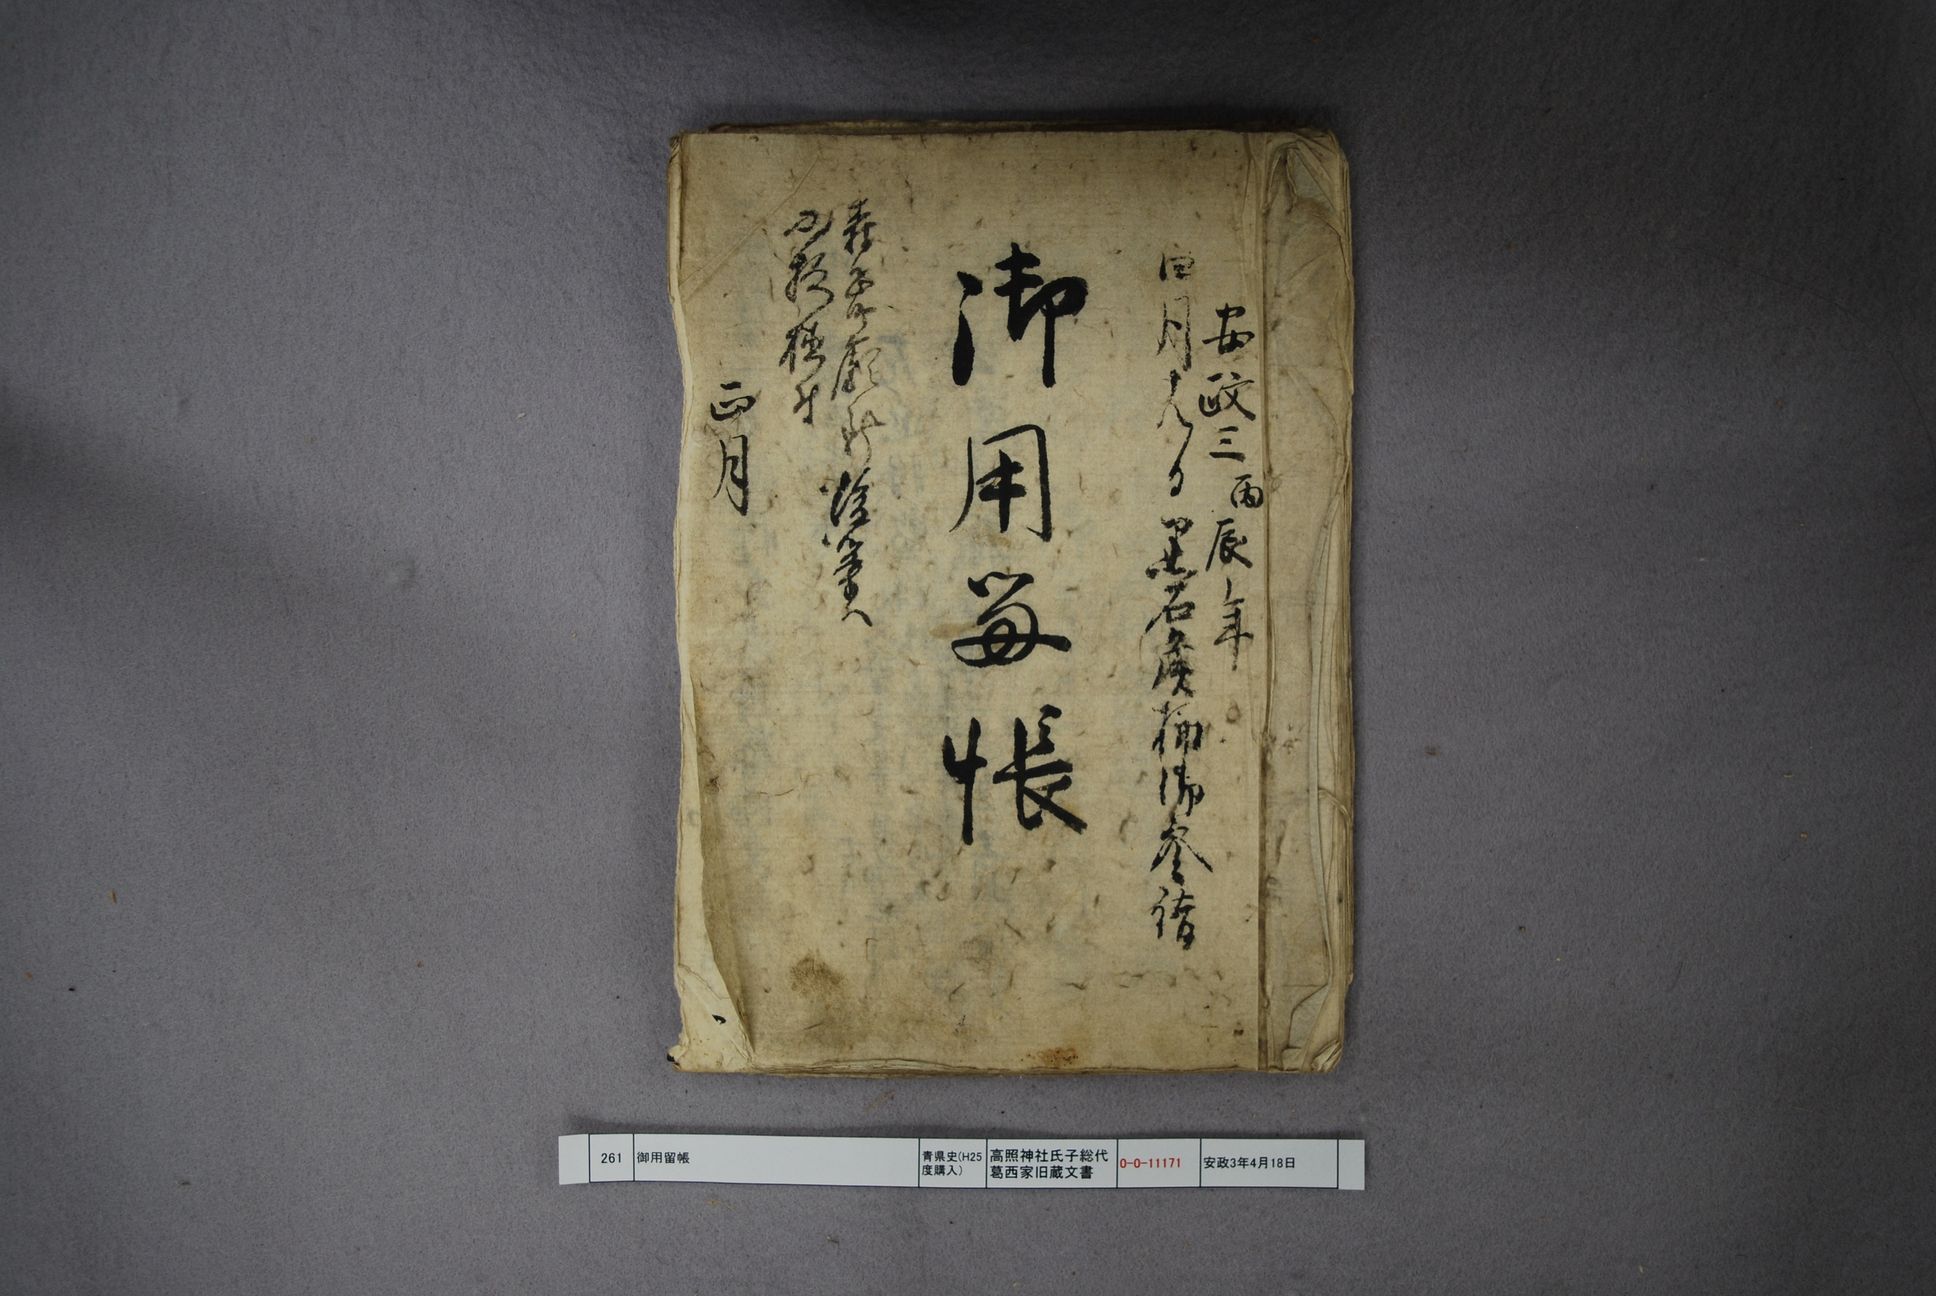 安政三丙辰年
四月十八日黒石廣楠御参詣
御用留帳
正月
261
御用留帳
青県史(H25
度購入)
高照神社氏子総代
葛西家旧蔵文書
0-0-11171
安政3年4月18日